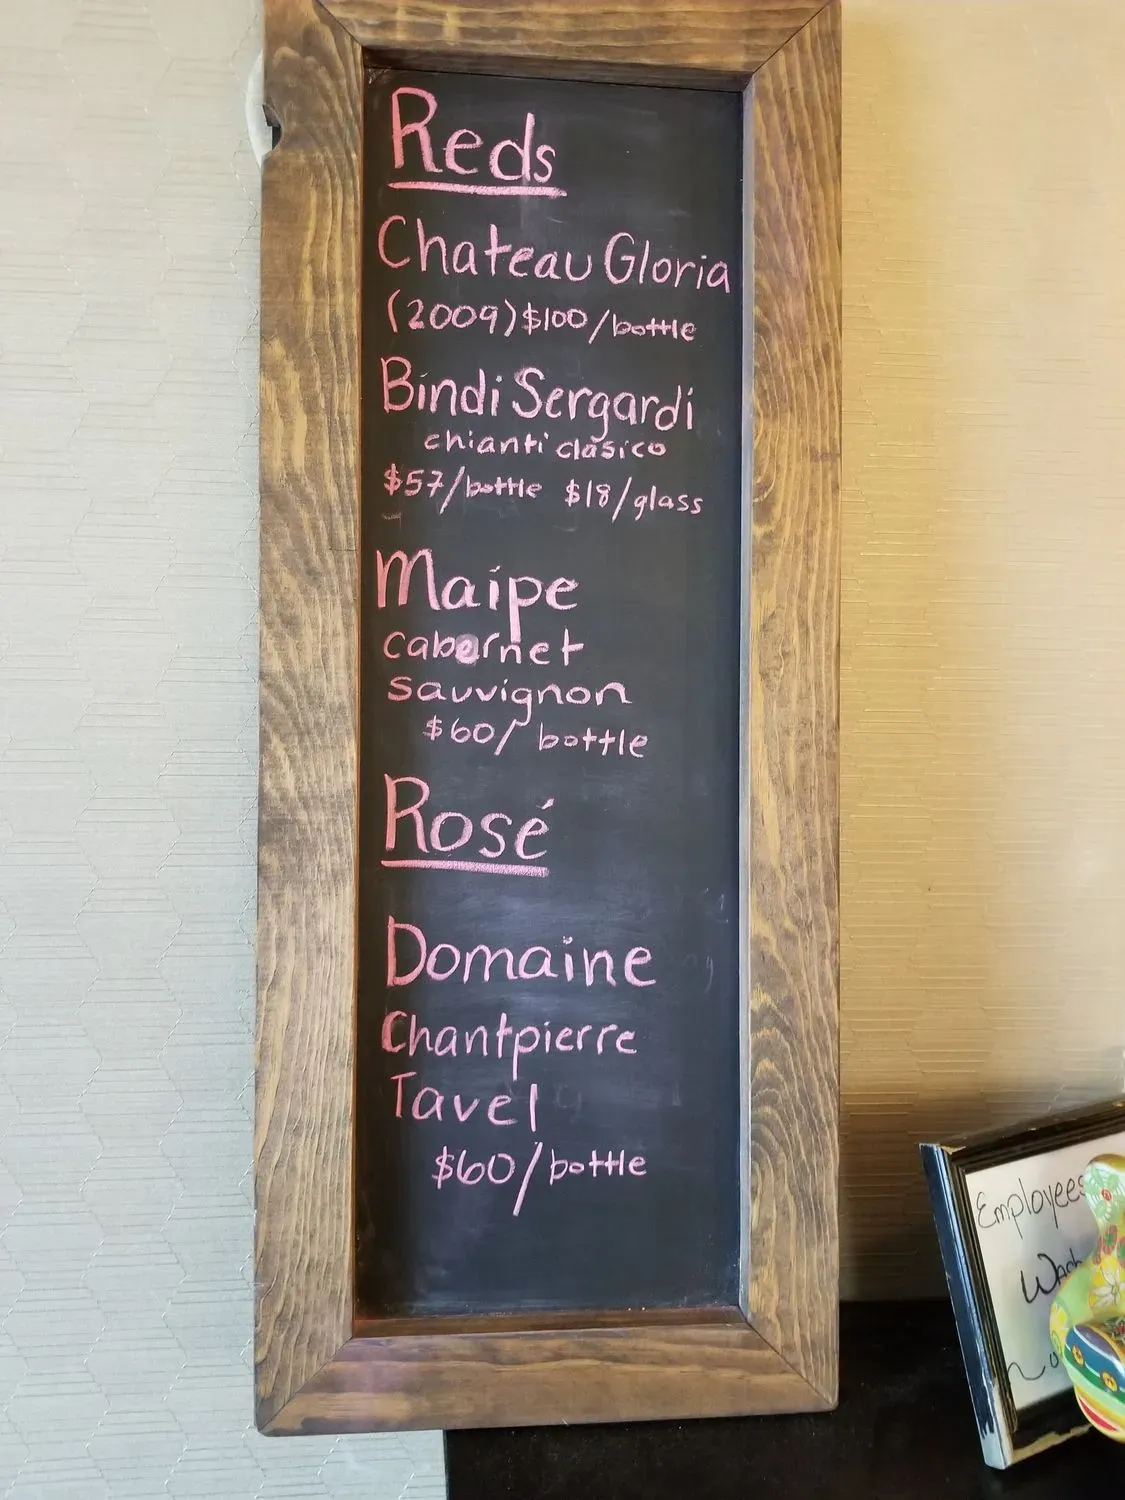 Reds
Chateau Gloria
(2009) $100/bottle
Bindi Sergardi
chianti clasico
$57/bottle $18/glass
Maipe
cabernet
sauvignon
$60/ bottle
Rosé
Domaine
Chantpierre
Tavel
$60/bottle
Employees